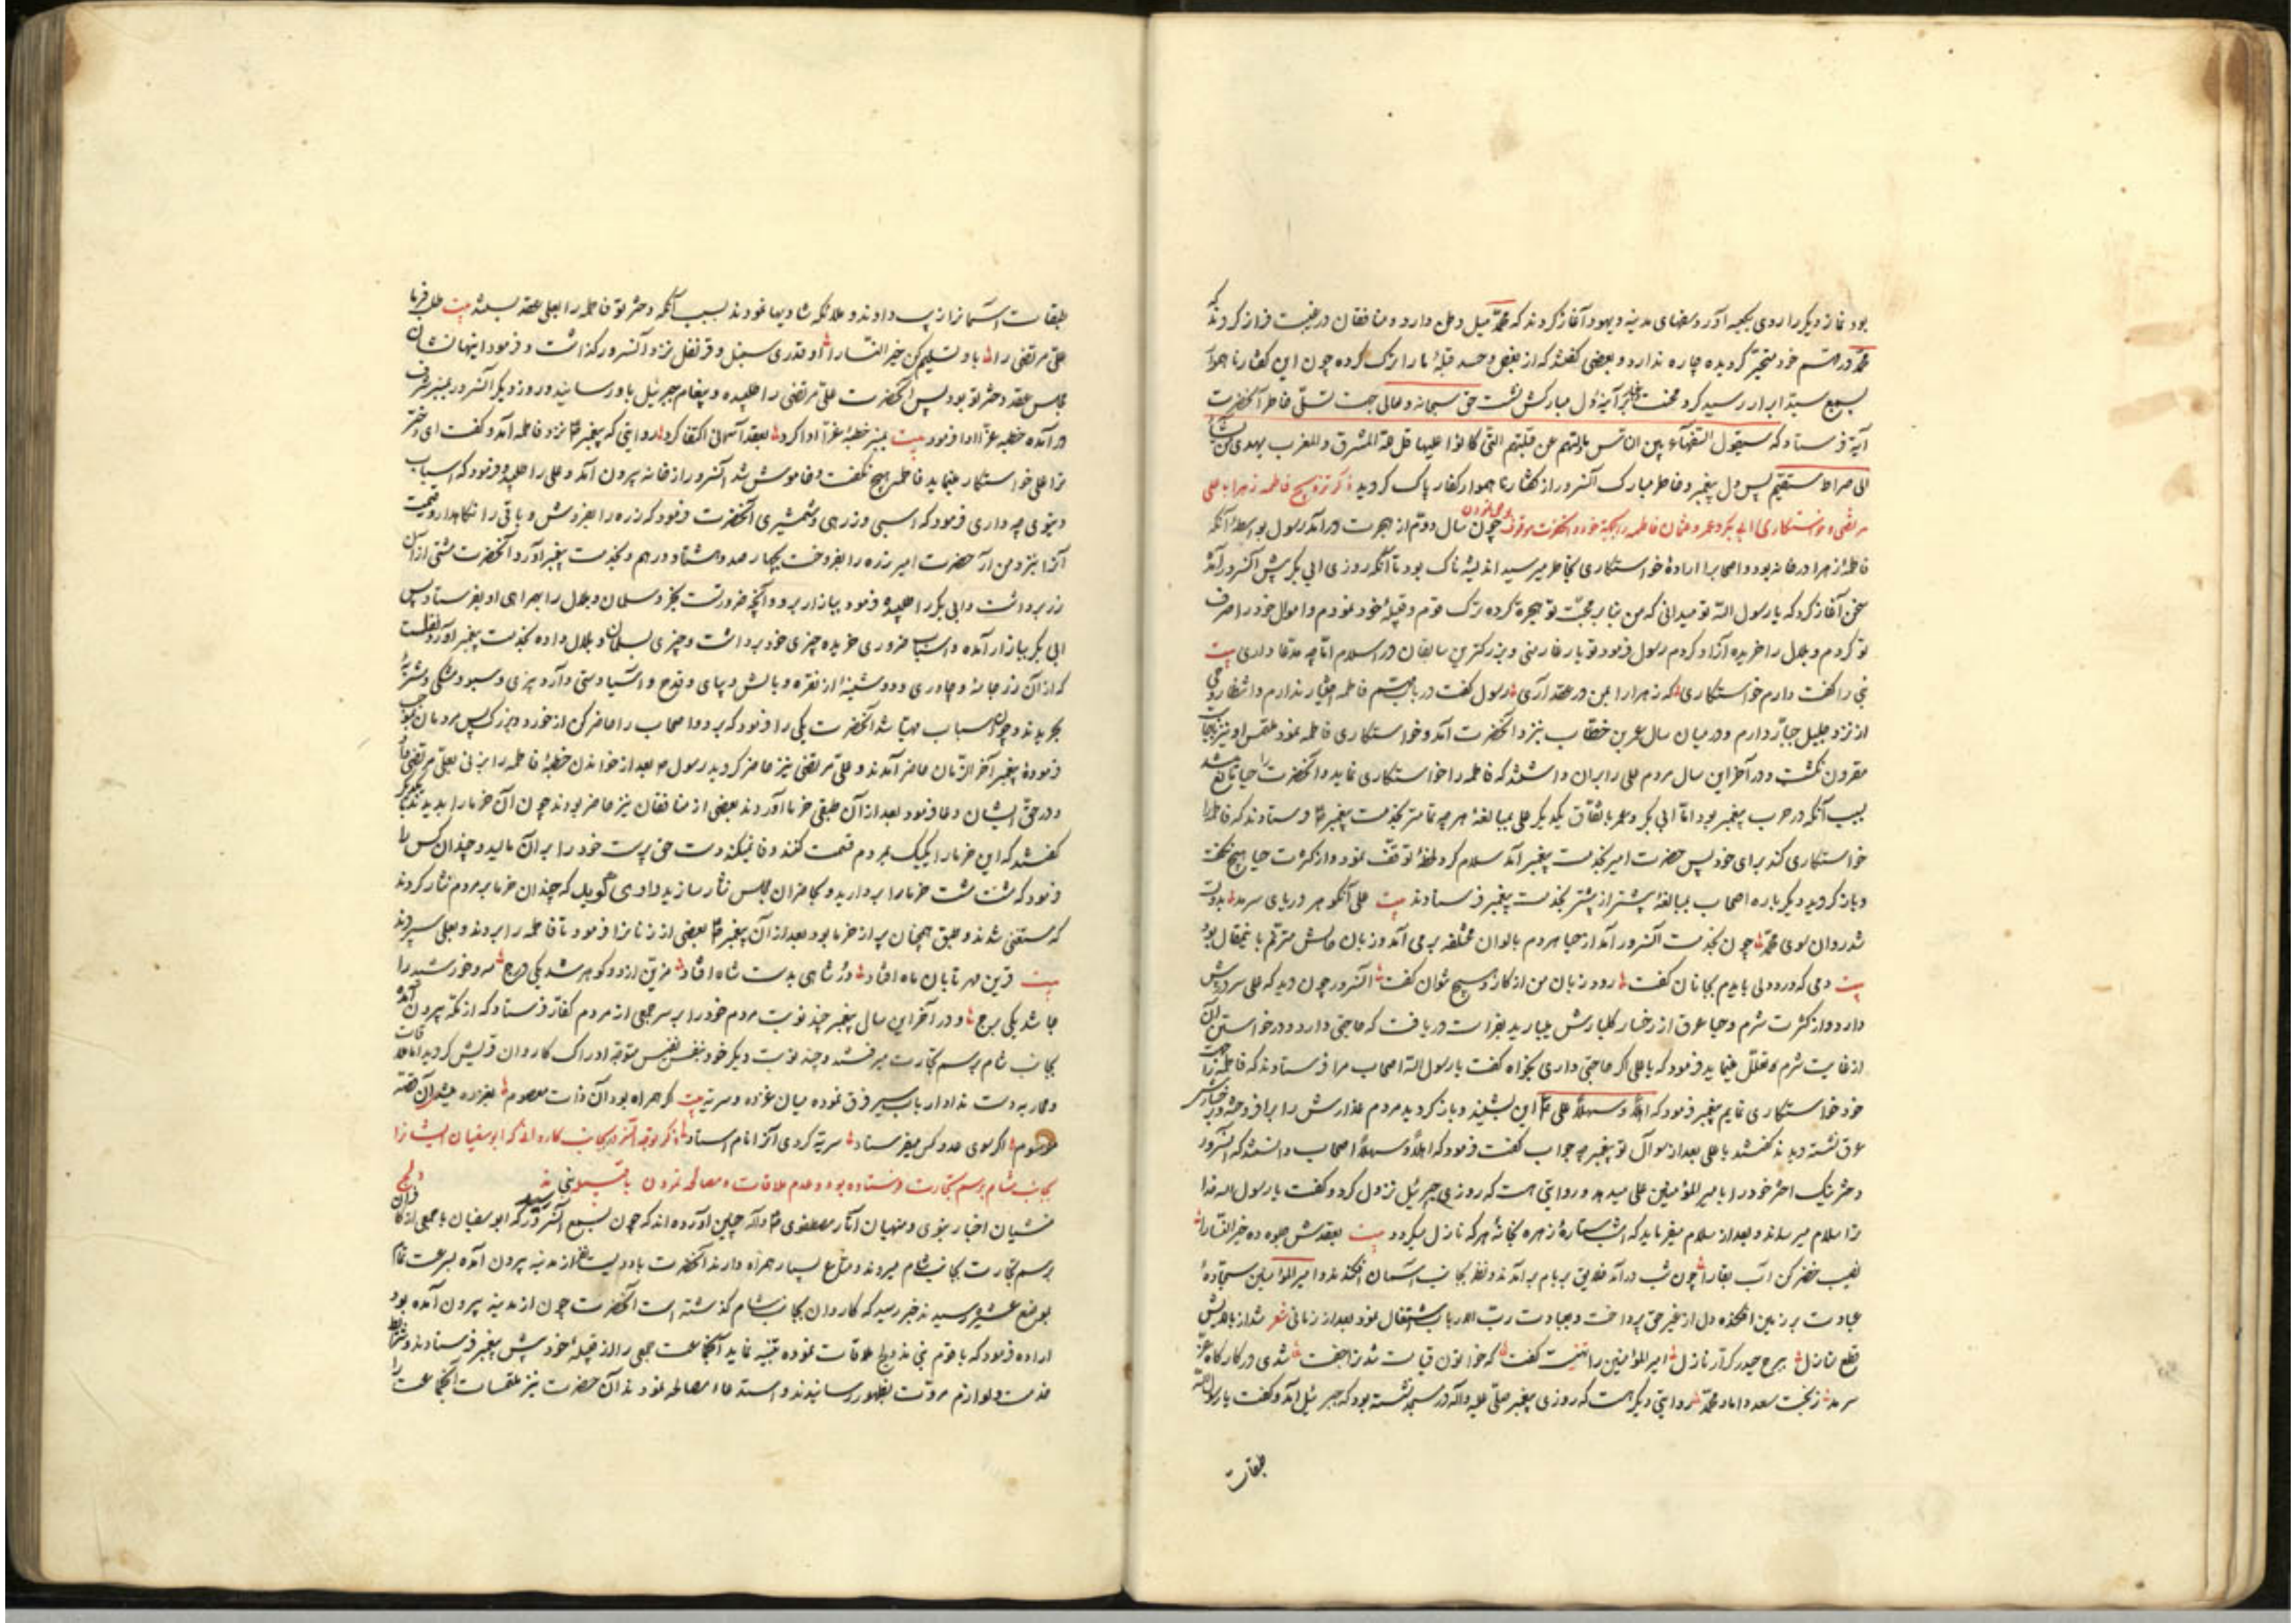 بود نماز دیگر را روی بکعبه آورد سفهای مدینه و یهود آغاز کردند که محمد میل وطن دارد و منافقان در غیبت فراز کردند که
محمد در قسم خود متحیّر گردیده چاره ندارد و بعضی گفتند که از بغض و حسد قبلهٔ ما را ترک کرده چون این گفتار ناهموار
بسمع سیّد ابرار رسید گرد محنت بر آینهٔ دل مبارکش نشست حق سبحانه و تعالی جهت تسلّی خاطر آنحضرت
آیة فرستاد که سیقول السّفهآء من النّاس ما ولّیهم عن قبلتهم التی کانوا علیها قل للّه المشرق والمغرب یهدی من یشآء
الی صراط مستقیم پس دل پیغمبر و خاطر مبارک آنسرور از گفتار ناهموار کفار پاک گردید ذکر تزویج فاطمه زهرا با علی
مرتضی و خواستکاری ابی بکر و عمر و عثمان فاطمه را بجهة خود و آنحضرت موقوف چون سال دوّم از هجرت درآمد رسول بواسطهٔ آنکه
فاطمهٔ زهرا در خانه بود و اصحابرا ارادهٔ خواستکاری بخاطر میرسید اندیشه ناک بود تا آنکه روزی ابی بکر پیش آنسرور آمد
سخن آغاز کرد که یا رسول الله تو میدانی که من بنابر محبّت تو هجرة کرده ترک قوم و قبیلهٔ خود نمودم و اموال خود را صرف
تو کردم و بلال را خریده آزاد کردم رسول فرمود تو یار غار منی و بزرکترین سابقان در اسلام امّا چه مدّعا داری بیت
نبی را گفت دارم خواستکاری که زهرا را بمن در عقد آری رسول گفت در باب فاطمه اختیار ندارم و انتظار وحی
از نزد جلیل جبّار دارم و در میان سال عمر بن خطاب بنزد آنحضرت آمد و خواستکاری فاطمه نمود ملتمس او نیز باجابت
مقرون نکشت و در آخر این سال مردم علی را بران داشتند که فاطمه را خواستکاری نماید و آنحضرت را حیا مانع میشد
بسبب آنکه در حرب پیغمبر بود امّا ابی بکر و عمر باتفاق یکدیکر علی بمبالغهٔ هر چه تمامتر بخدمت پیغمبر فرستادند که فاطمه را
خواستکاری کند برای خود پس حضرت امیر بخدمت پیغمبر آمد سلام کرد لحظهٔ توقّف نمود و از کثرت حیا هیچ نکفت
و باز کردید دیگر باره اصحاب بمبالغهٔ بیشتر از پیشتر بخدمت پیغمبر فرستادند بیت علی آنکوهر دریای سرمد بدولت
شد روان سوی محمّد چون بخدمت آنسرور آمد از حیا هر دم بالوان مختلفه برمی آمد و زبان حالش مترنّم باینمقال بود
بیت دمی که درد دلی بایدم بجانان گفت رود زبان من از کار و هیچ نتوان گفت آنسرور چون دید که علی سر در پیش
دارد و از کثرت شرم و حیا عرق از رخسار کلبارش میبارید بفراست دریافت که حاجتی دارد و در خواستن آن
از غایت شرم تعلّل مینماید فرمود که یا علی اکر حاجتی داری بخواه گفت یا رسول الله اصحاب مرا فرستادند که فاطمه را جهت
خود خواستکاری نمایم پیغمبر فرمود که اهلاً و سهلاً علی این بشنید و باز کردید مردم عذارش را برافروخته و بر رخسارش
عرق نشسته دیدند گفتند یا علی بعد از سوآل تو پیغمبر چه جواب گفت فرمود که اهلاً و سهلاً اصحاب دانستند که آنسرور
دختر نیک اختر خود را بامیر المؤمنین علی میدهد و روایتی هست که روزی جبرئیل نزول کرد و گفت یا رسول الله خدا
ترا سلام میرساند و بعد از سلام میفرماید که امشب ستارهٔ زهره بخانهٔ هر که نازل میکردد بیت بعقدش جلوه ده خیر النّسا را
نصیب خضر کن آب بقا را چون شب درآمد خلایق بر بام برآمدند و نظر بجانب آسمان افکندند و امیر المؤمنین سجّادهٔ
عبادت بر زمین افکنده دل از غیر حق پرداخت و بعبادت ربّ الارباب اشتغال نمود بعد از زمانی شعر شد از بالا بیش
قطع منازل ببرج حیدر کرّار نازل امیر المؤمنین را تهنیت گفت که خواتون قیامت شد ترا جفت شدی در کارکاه عزّ
سرمد ز بخت سعد داماد محمّد روایتی دیگر هست که روزی پیغمبر صلّی علیه وآله در مسجد نشسته بود که جبرئیل آمد و گفت یا رسول الله
طبقات
طبقات آسمانرا زیب دادند و ملائکه شادیها نمودند بسبب آنکه دختر تو فاطمه را بعلی عقد بستند بیت طلب فرما
علی مرتضی را باو تسلیم کن خیر النّسا را و قدری سنبل و قرنفل نزد آنسرور گذاشت و فرمود اینها نشان
مجلس عقد دختر تو بود پس آنحضرت علی مرتضی را طلبیده و پیغام جبرئیل باو رسانید و روز دیگر آنسرور بمنبر شرف
درآمده خطبه غرّا ادا فرمود بیت بمنبر خطبهٔ غرّا ادا کرد بعقد آسمانی اکتفا کرد روایتی که پیغمبر نزد فاطمه آمد و گفت ای دختر
ترا علی خواستکاری مینماید فاطمه هیچ نکفت و خاموش شد آنسرور از خانه بیرون آمد و علی را طلبید و فرمود که اسباب
دنیوی چه داری فرمود که اسبی و زرهی و شمشیری آنحضرت فرمود که زره را بفروش و باقی را نکاهدار و قیمت
آنرا بنزد من آر حضرت امیر زره را بفروخت بچهار صد و هشتاد درهم و بخدمت پیغمبر آورد آنحضرت مشتی از آن
زر برداشت و ابی بکر را طلبیده فرمود ببازار برو و آنچه ضرورتست بخر و سلمان و بلال را بهمراهی او بفرستاد پس
ابی بکر ببازار آمده و اسباب ضروری خریده چیزی خود برداشت و چیزی بسلمان و بلال داده بخدمت پیغمبر آورد نقلست
که از آن زر جامهٔ و چادری و دو دستینهٔ از نقره و بالش و پیاله و قدح و آسیا دستی و آرد بیزی و سبو و مشکی و مشربهٔ
بخریدند و چون اسباب مهیّا شد آنحضرت یکی را فرمود که برو و اصحاب را حاضر کن از خورد و بزرک پس مردمان بموجب
فرمودهٔ پیغمبر آخر الزّمان حاضر آمدند و علی مرتضی نیز حاضر کردید رسول بعد از خواندن خطبه فاطمه را بزنی بعلی مرتضی داد
و در حق ایشان دعا فرمود بعد از آن طبقی خرما آوردند بعضی از منافقان نیز حاضر بودند چون آن خرما را بدیدند با یکدیگر
گفتند که این خرما را یک یک بمردم قسمت کنند وفا نمیکند دست حق پرست خود را بر آن مالید و چندان کس را
فرمود که مشت مشت خرما را بردارید و بحاضران مجلس نثار سازید راوی گوید که چندان خرما بر مردم نثار کردند
که مستغنی شدند و طبق همچنان پر از خرما بود بعد از آن پیغمبر بعضی از زنانرا فرمود تا فاطمه را بردند و بعلی سپردند
بیت قرین مهر تابان ماه افتاد درّ شاهی بدست شاه افتاد مزیّن از دو گوهر شد یکی درج مه و خورشید را
جا شد یکی برج و در آخر این سال پیغمبر چند نوبت مردم خود را بر سر جمعی از مردم کفّار فرستاد که از مکّه بیرون آمده
بجانب شام برسم تجارت میرفتند و چند نوبت دیگر خود بنفس نفیس متوجّه ادراک کاروان قریش کردید امّا ملاقات
و محاربه دست نداد ارباب سیر فرق نموده میان غزوه و سریّه بیت که همراه بود آن ذات معصوم بغزوه میشد آن قصّه
موسوم اگر سوی عدو کس میفرستاد سریّه کردی آنرا نام استاد ذکر توجّه آنسرور بجانب کاروان که ابو سفیان ایشانرا
بجانب شام برسم تجارت فرستاده بود و عدم ملاقات و مصالحه نمودن با قبیلهٔ بنی مدلج
منشیان اخبار نبوی و منهیان آثار مصطفوی چنین آورده اند که چون بسمع آنسرور رسید که ابو سفیان با جمعی از کافران
برسم تجارت بجانب شام میروند و متاع بسیار همراه دارند آنحضرت با دویست نفر از مدینه بیرون آمده بسرعت تمام
بموضع عشیره رسیدند خبر رسید که کاروان بجانب شام گذشته است آنحضرت چون از مدینه بیرون آمده بود
اراده فرمود که با قوم بنی مدلج ملاقات نموده تنبیه نماید آنجماعت جمعی را از قبیلهٔ خود پیش پیغمبر فرستادند و شرایط
خدمت و لوازم مروّت بظهور رسانیدند و استدعاء مصالحه نمودند آن حضرت نیز ملتمسات آنجماعت را